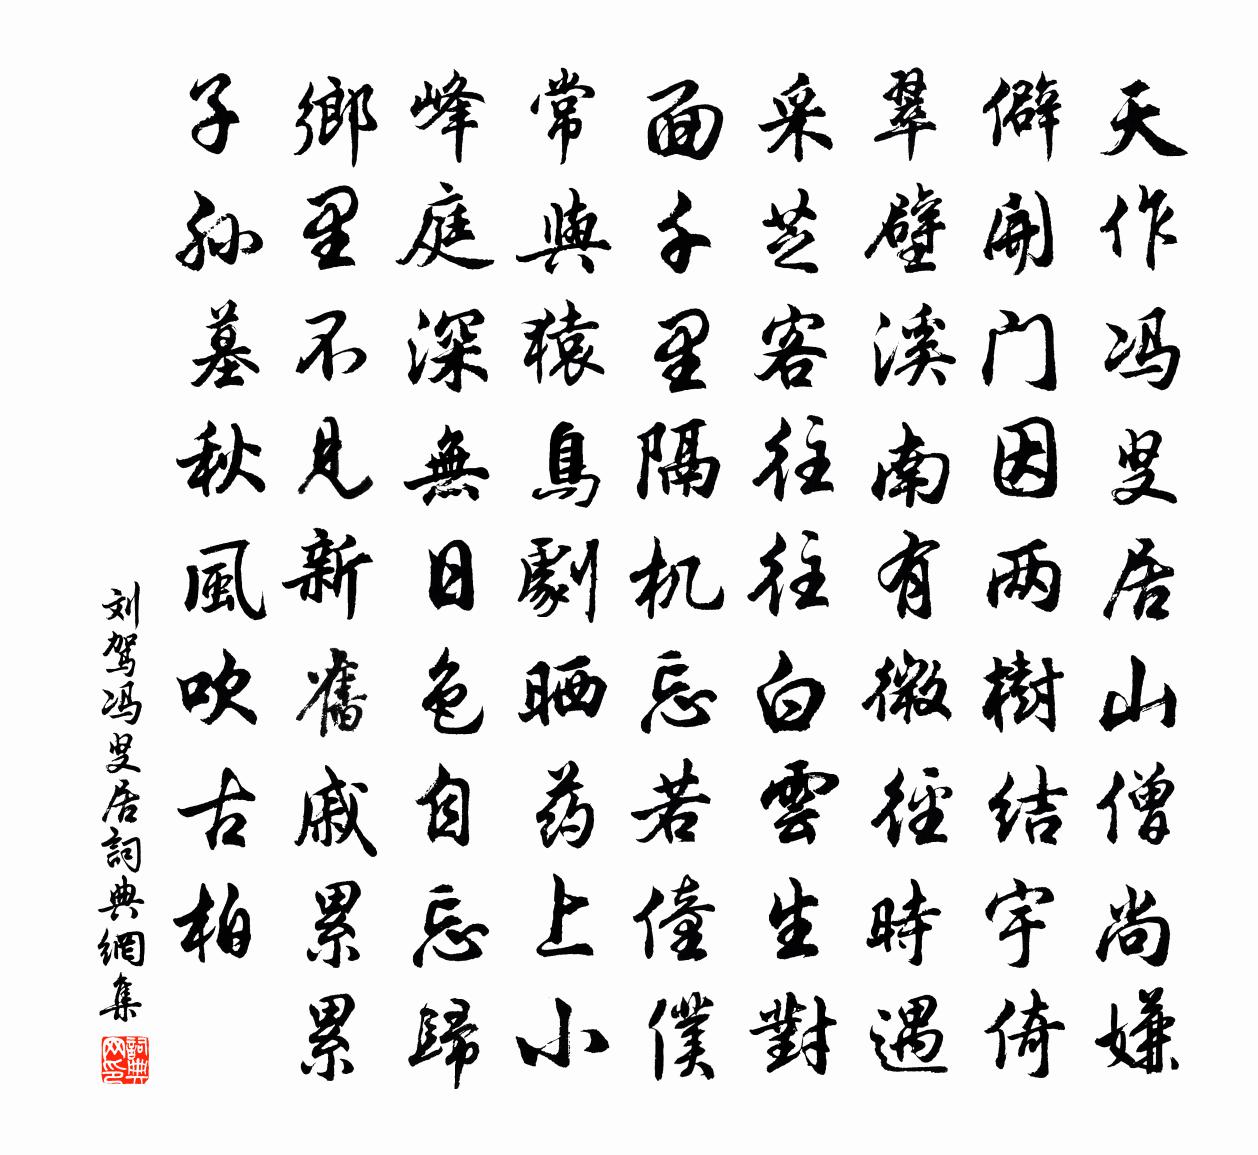 天作冯叟居山僧尚嫌
僻開门因两樹结宇倚
翠壁溪南有微徑時遇
采芝客往往白雲生對
面千里隔机忘若僮僕
常與猿鳥劇晒药上小
峰庭深無日色自忘歸
鄉里不見新舊戚累累
子孙墓秋風吹古柏
刘驾冯叟居詞典網集
詞典网印